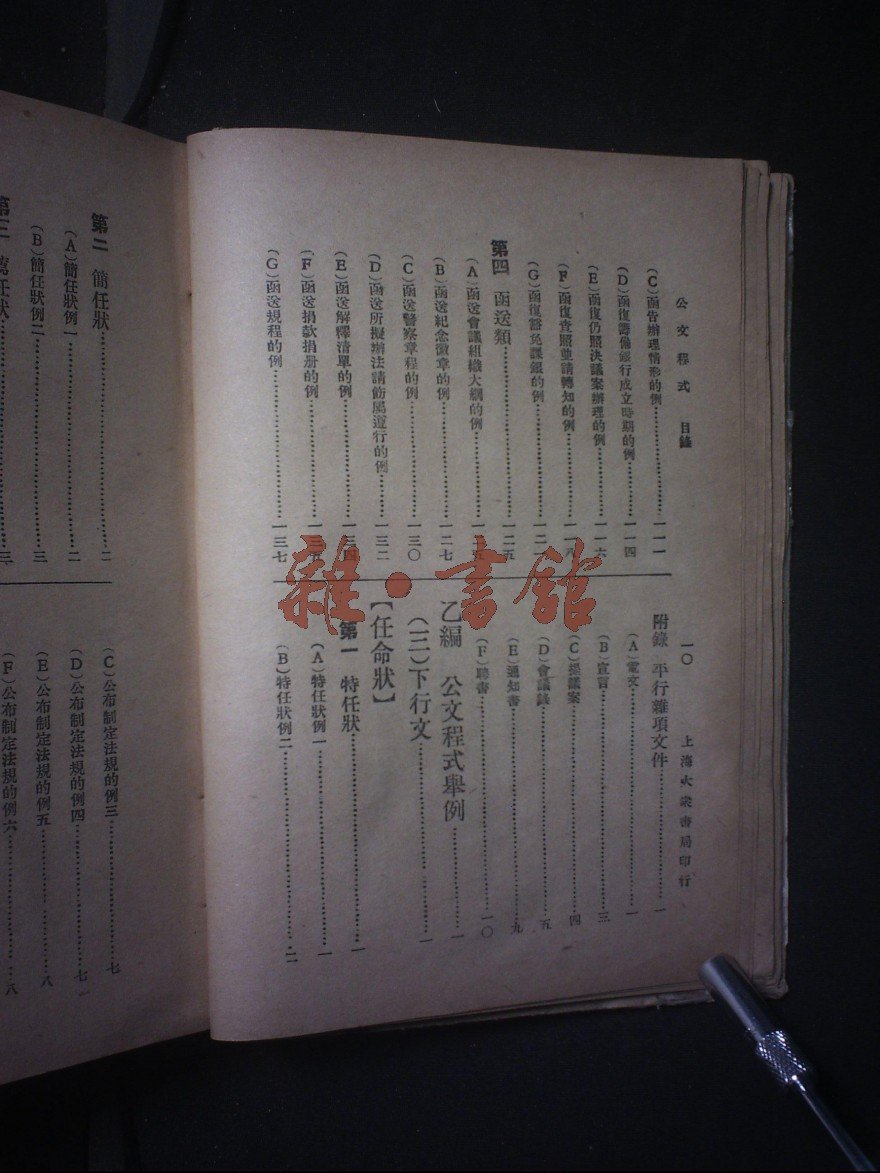 公文程式 目錄
(C)函告辦理情形的例 一一一
(D)函復籌備銀行成立時期的例 一一四
(E)函復仍照決議案辦理的例 一一六
(F)函復查照並請轉知的例 一一八
(G)函復豁免課銀的例 一二一
第四 函送類 一二五
(A)函送會議組織大綱的例 一二五
(B)函送紀念徽章的例 一二七
(C)函送警察章程的例 一三〇
(D)函送所擬辦法請飭屬遵行的例 一三二
(E)函送解釋清單的例 一三四
(F)函送捐款捐册的例 一三五
(G)函送規程的例 一三七
一〇 上海大衆書局印行
附錄 平行雜項文件 一
(A)電文 一
(B)宣言 三
(C)提議案 四
(D)會議錄 五
(E)通知書 九
(F)聘書 一〇
乙編 公文程式舉例 一
(三)下行文 一
【任命狀】
第一 特任狀 一
(A)特任狀例一 一
(B)特任狀例二 二
第二 簡任狀 二
(A)簡任狀例一 二
(B)簡任狀例二 三
第三 薦任狀 三
(C)公布制定法規的例三 七
(D)公布制定法規的例四 七
(E)公布制定法規的例五 八
(F)公布制定法規的例六 八
雜·書館